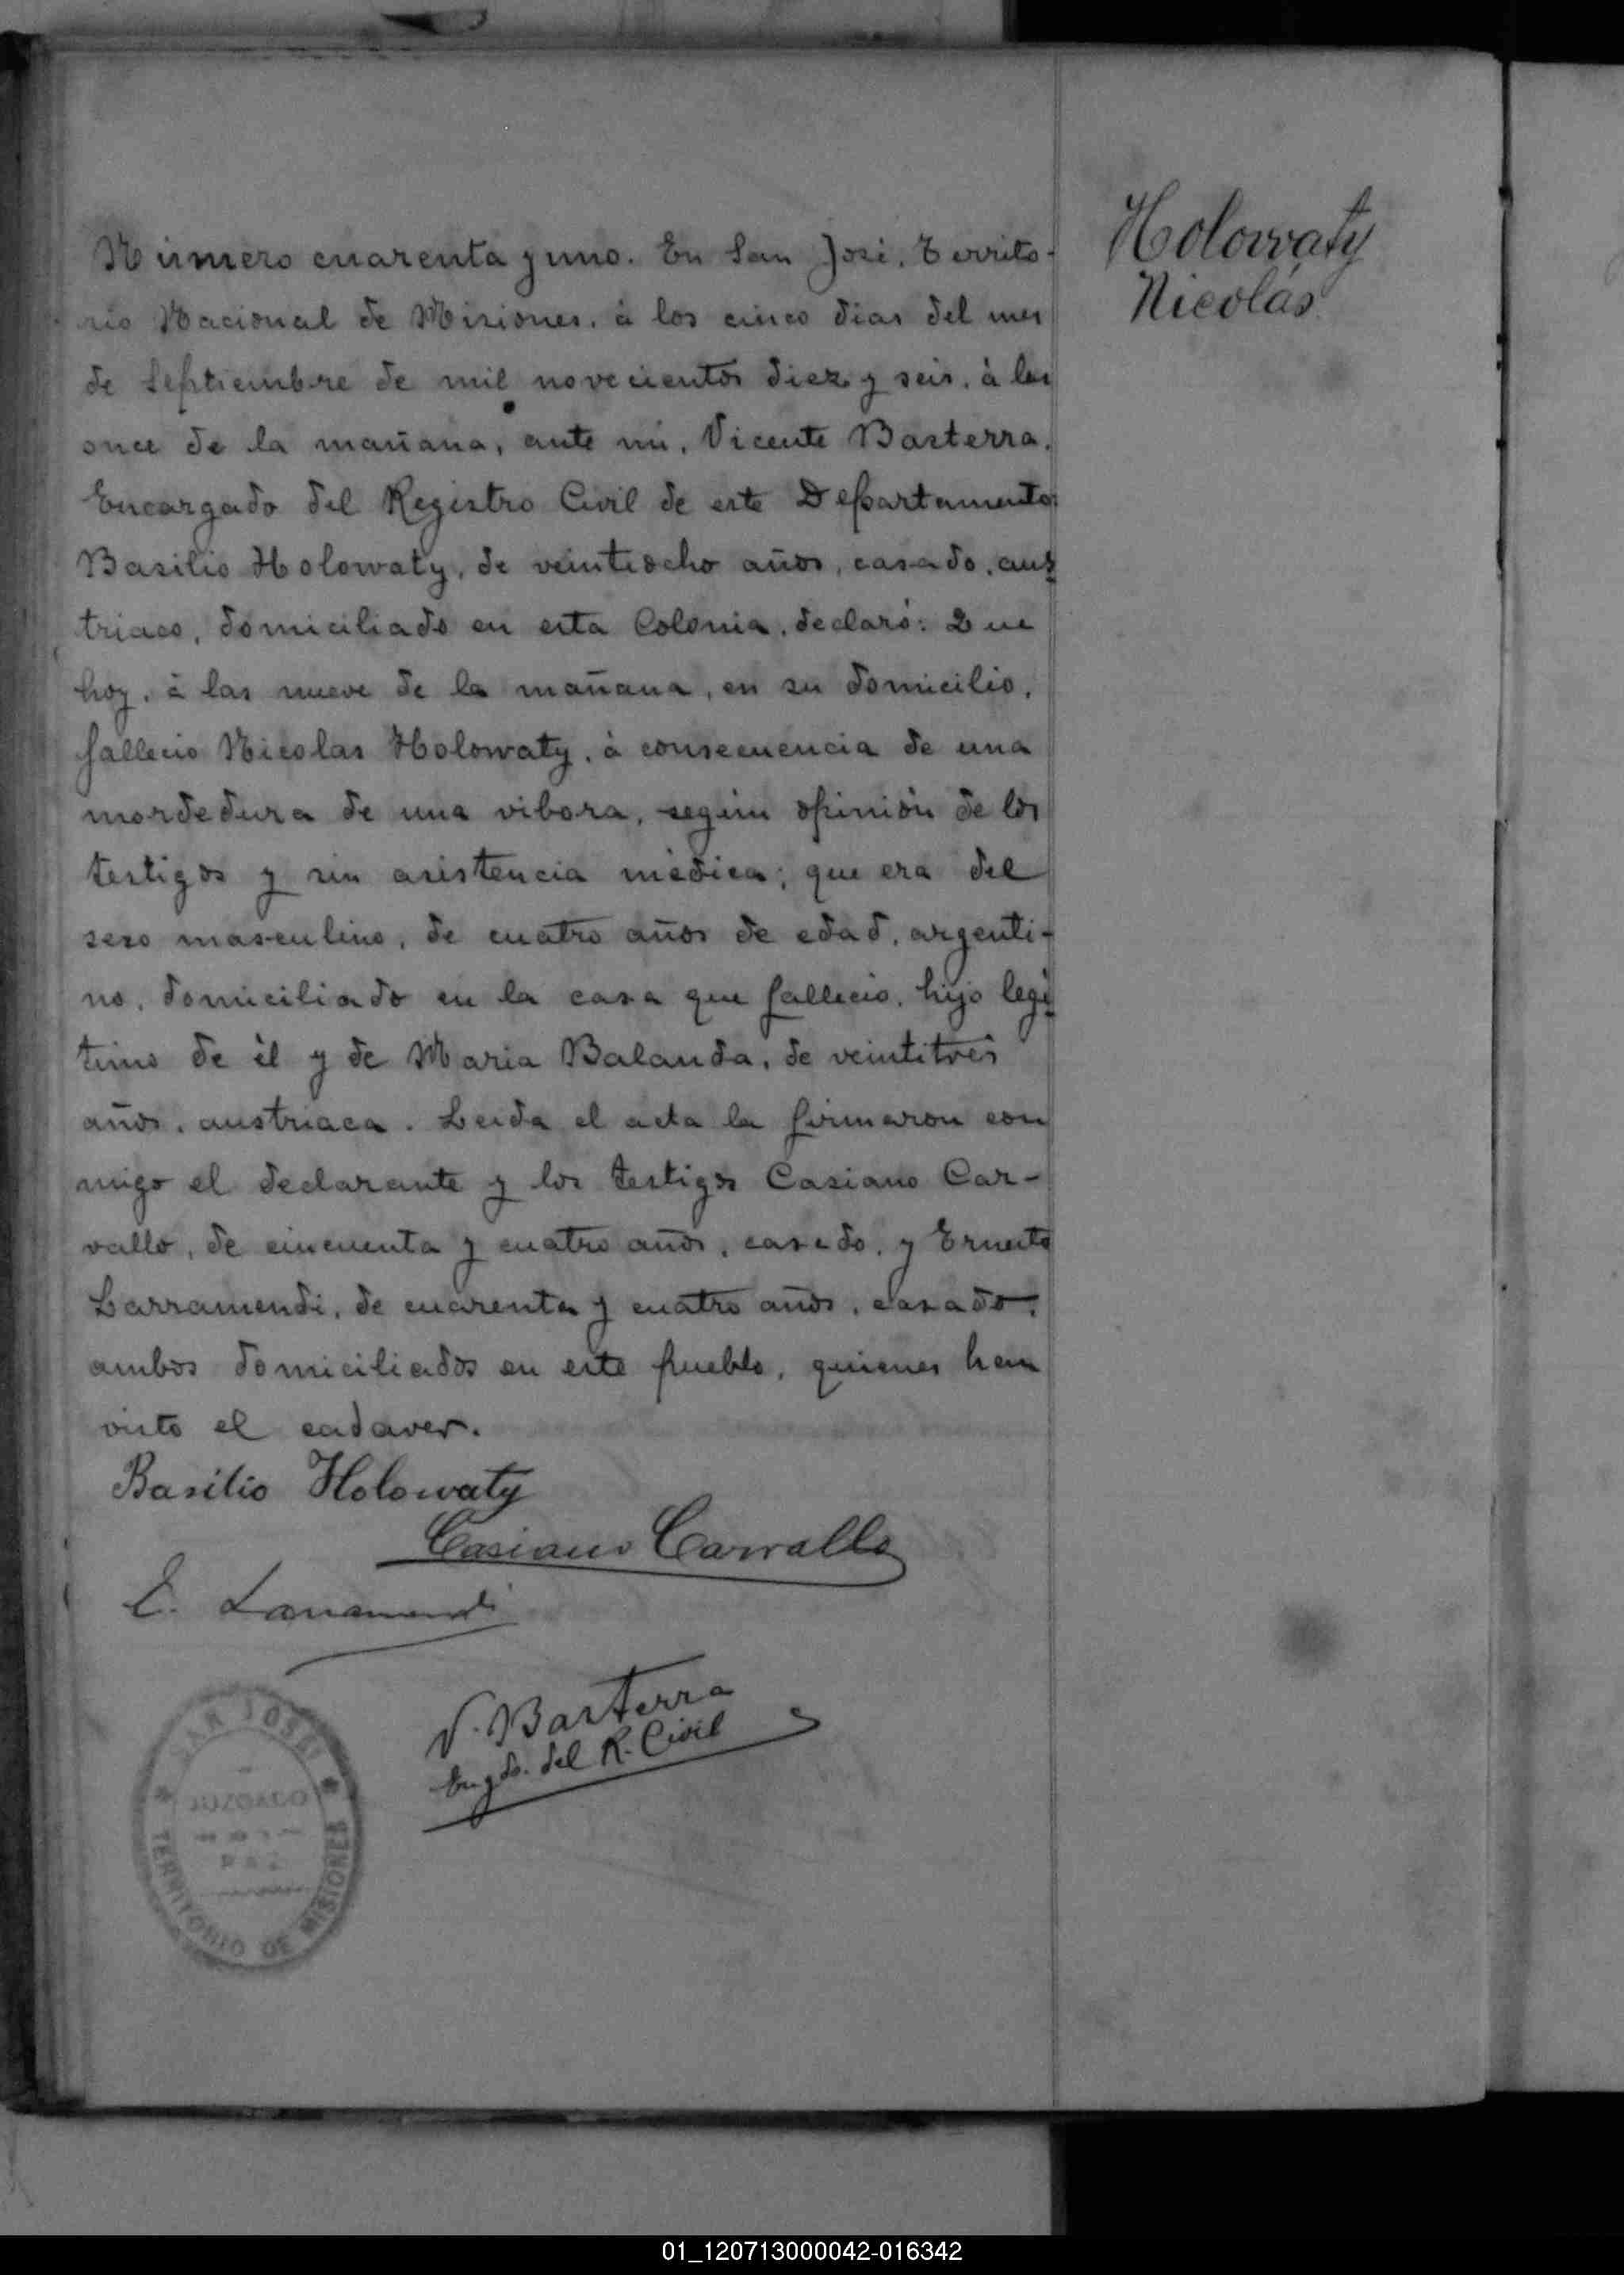 Número cuarenta y uno. En San José, Territo-
rio Nacional de Misiones, à los cinco dias del mes
de Septiembre de mil novecientos diez y seis, à las
once de la mañana, ante mi, Vicente Basterra,
Encargado del Registro Civil de este Departamento:
Basilio Holowaty, de veintiocho años, casado, aus-
triaco, domiciliado en esta Colonia, declaró: Que
hoy, à las nueve de la mañana, en su domicilio,
fallecio Nicolas Holowaty, à consecuencia de una
mordedura de una vibora, segùn opiniòn de los
testigos y sin asistencia mèdica; que era del
sexo masculino, de cuatro años de edad, argenti-
no, domiciliado en la casa que fallecio, hijo legi-
timo de èl y de Maria Balanda, de veintitres
años, austriaca. Leida el acta la firmaron con
migo el declarante y los testigos Casiano Car-
vallo, de cincuenta y cuatro años, casado, y Ernesto
Larramendi, de cuarenta y cuatro años, casado,
ambos domiciliados en este pueblo, quienes han
visto el cadaver.
Basilio Holowaty
Casiano Carvallo
E. Larramendi
V. Basterra
Engdo. del R. Civil
Holowaty
Nicolás
SAN JOSE
JUZGADO
DE
PAZ
TERRITORIO DE MISIONES
01_120713000042-016342